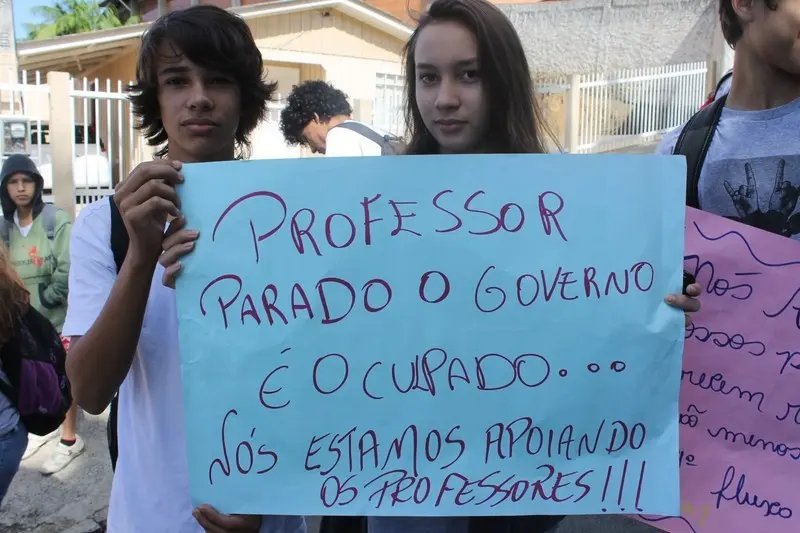 PROFESSOR
PARADO O GOVERNO
É O CULPADO...
NÓS ESTAMOS APOIANDO
OS PROFESSORES!!!
Nós
menos
fluxo